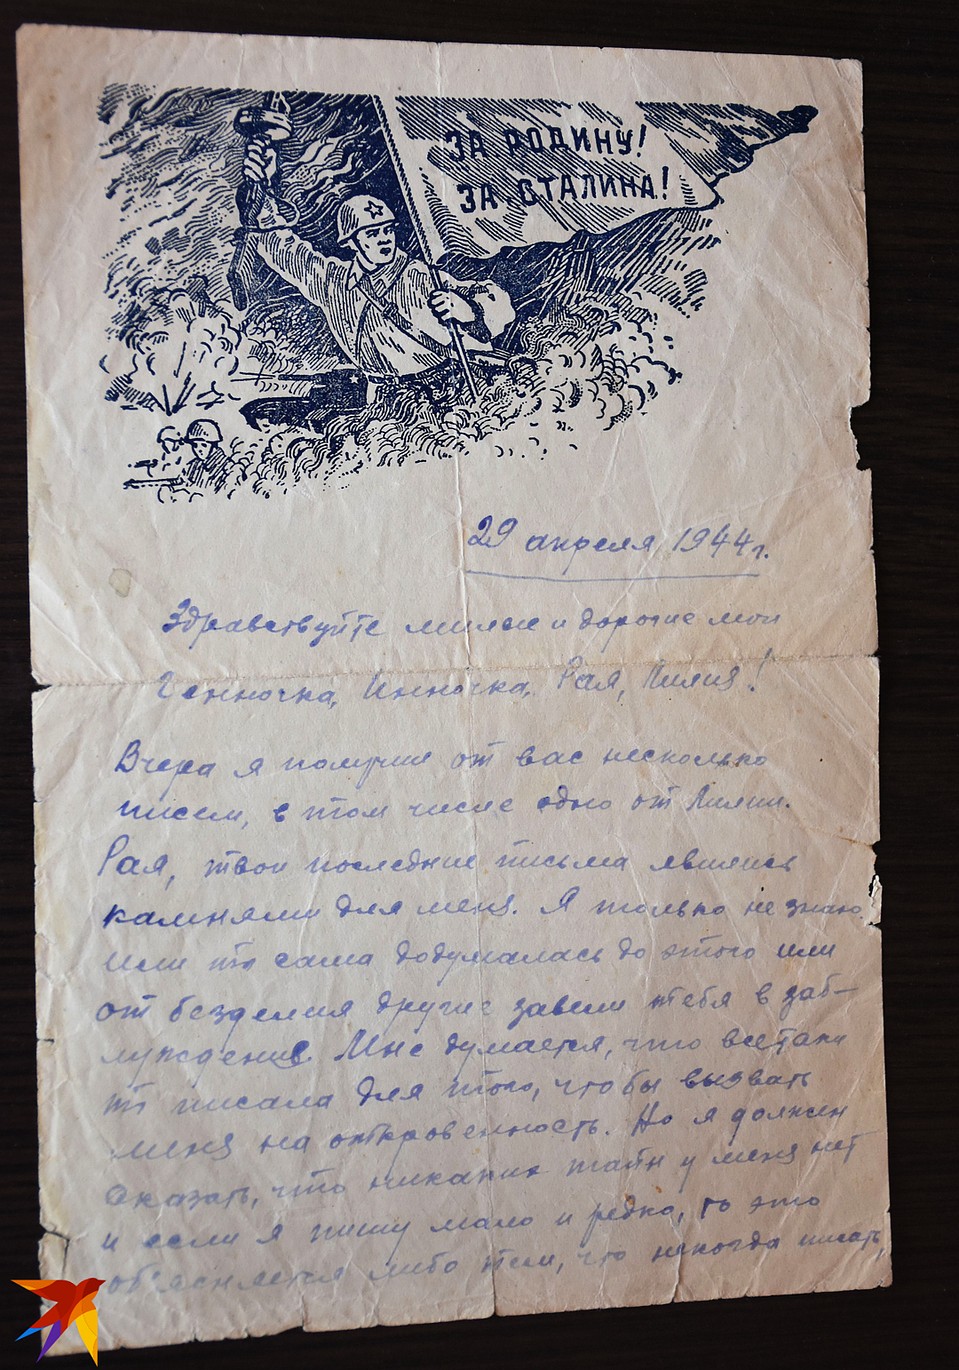 ЗА РОДИНУ!
ЗА СТАЛИНА!
29 апреля 1944 г.
Здравствуйте милые и дорогие мои
Генночка, Инночка, Рая, Лилия!
Вчера я получил от вас несколько
писем, в том числе одно от Лилии.
Рая, твои последние письма явились
камнями для меня. Я только не знаю
или ты сама додумалась до этого или
от безделия другие завели тебя в заб-
луждение. Мне думается, что всетаки
ты писала для того, чтобы вызвать
меня на откровенность. Но я должен
сказать, что никаких тайн у меня нет
и если я пишу мало и редко, то это
об'ясняется либо тем, что некогда писать,